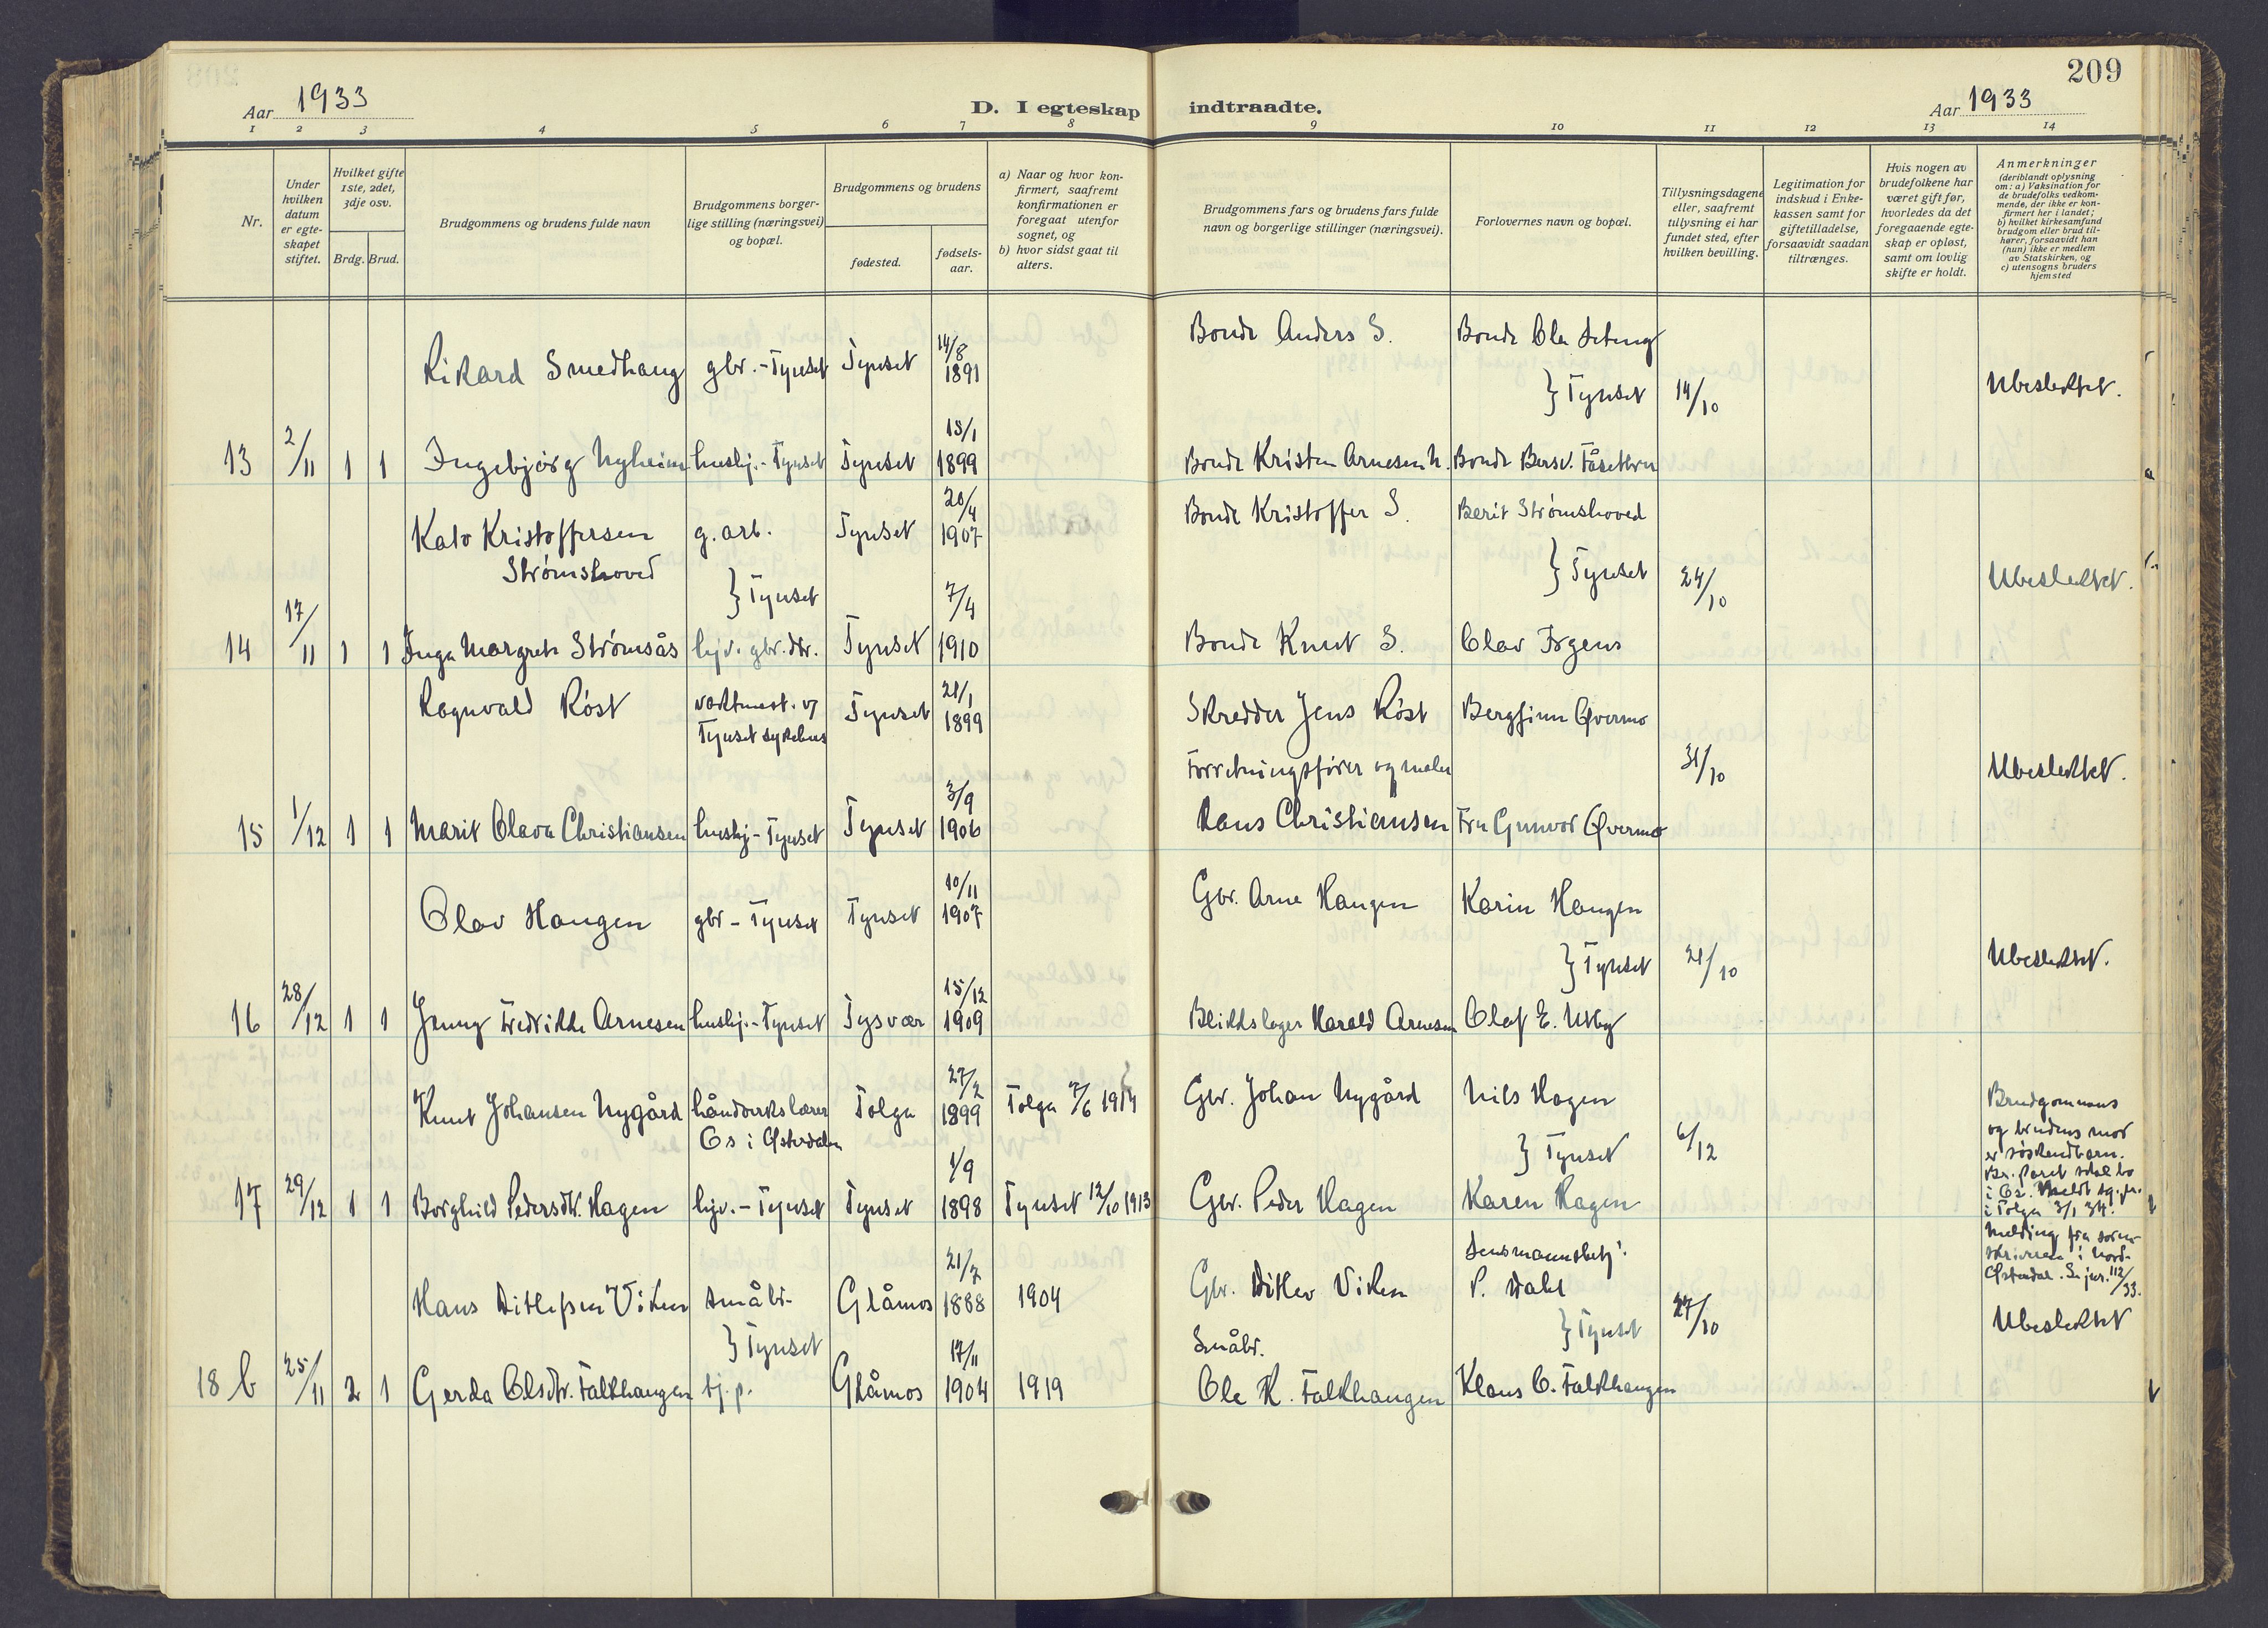 209
Aar 1933
D. I egteskap indtraadte.
Aar 1933
1 2 3 4 5 6 7 8 9 10 11 12 13 14
Nr.
Under hvilken datum er egte-skapet stiftet.
Hvilket gifte 1ste, 2det, 3dje osv.
Brdg. Brud.
Brudgommens og brudens fulde navn
Brudgommens borger-lige stilling (næringsvei) og bopæl.
Brudgommens og brudens
fødested.
fødsels-aar.
a) Naar og hvor kon-firmert, saafremt konfirmationen er foregaat utenfor sognet, og
b) hvor sidst gaat til alters.
Brudgommens fars og brudens fars fulde navn og borgerlige stillinger (næringsvei).
Forlovernes navn og bopæl.
Tillysningsdagene eller, saafremt tullysning ei har fundet sted, efter hvilken bevilling.
Legitimation for indskud i Enke-kassen samt for giftetilladelse, forsaavidt saadan tiltrænges.
Hvis nogen av brudefolkene har været gift før, hvorledes da det foregaaende egte-skap er opløst, samt om lovlig skifte er holdt.
Anmerkninger
(deriblandt oplysning om: a) Vaksination for de brudefolks vedkom-mende, der ikke er kon-firmert her i landet;
b) hvilket kirkesamfund brudgom eller brud til-hører, forsaavidt han (hun) ikke er medlem av Statskirken, og
c) utensogns bruders hjemsted
Rikard Smedhaug gbr. - Tynset Tynset 14/8 1891 Bonde Anders S. Bonde Ola
} Tynset 14/10 Ubeslektet.
13 2/11 1 1 Ingebjørg Nyheim hushj. - Tynset Tynset 13/1 1899 Bonde Kristen Arnesen N. Bonde Bersv.
Kato Kristoffersen Strømshoved g. arb. Tynset 20/4 1907 Bonde Kristoffer S. Berit Strømshoved
} Tynset } Tynset 24/10 Ubeslektet.
14 17/11 1 1 Inga Margrete Strømsås hjv. gbr. dtr. Tynset 7/4 1910 Bonde Knut S. Olav Irgens
Ragnvald Røst vaktmest. v/ Tynset sykehus Tynset 21/1 1899 Skredder Jens Røst Bergfinn Øvermo
31/10 Ubeslektet.
15 1/12 1 1 Marit Olava Christiansen hushj - Tynset Tynset 3/9 1906 Forretningsfører og maler Hans Christiansen Fru Gunvor Øvermo
Olav Haugen gbr - Tynset Tynset 10/11 1907 Gbr. Arne Haugen Karin Haugen
} Tynset 21/10 Ubeslektet.
16 28/12 1 1 Jenny Fredrikke Arnesen hushj. - Tynset Tysvær 15/12 1909 Blikkslager Harald Arnesen Olaf E. Utby
Knut Johansen Nygård håndverkslærer Os i Østerdalen Tolga 27/2 1899 Tolga 7/6 1914 Gbr. Johan Nygård Nils Hagen
} Tynset 6/12
Brudgommens
og brudens mor
er søskendbarn.
Br. paret skal bo
i Os. Meldt sg. pr.
i Tolga 3/1 34.
17 29/12 1 1 Borghild Pedersdtr. Hagen hjv. - Tynset Tynset 1/9 1898 Tynset 12/10 1913 Gbr. Peder Hagen Karen Hagen
Hans Ditlefsen Viken småbr. Glåmos 21/7 1888 1904 Gbr. Ditlev Viken Lensmannsbetj. P. Dahl
} Tynset } Tynset 27/10
Melding fra soren-
skriveren i Nord-
Østerdal. Se jnr. 112/33.
Ubeslektet
18 b 25/11 2 1 Gerda Olsdtr. Falkhaugen tj. p. Glåmos 17/11 1904 1919 Småbr. Ole K. Falkhaugen Klaus O. Falkhaugen